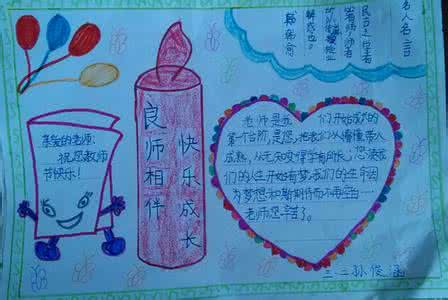 名人名言
解惑也。
亲爱的老师:
祝您教师
节快乐!
良师相伴
快乐成长
老师是我们开始成大的
第一个台阶,是您,把我们从懵懂带入
成熟,从无知变得学有所长,您使我
们的人生开始有梦,我们的人生因
为梦想和期待而不再
老师您辛苦了。
三.二孙俊涵